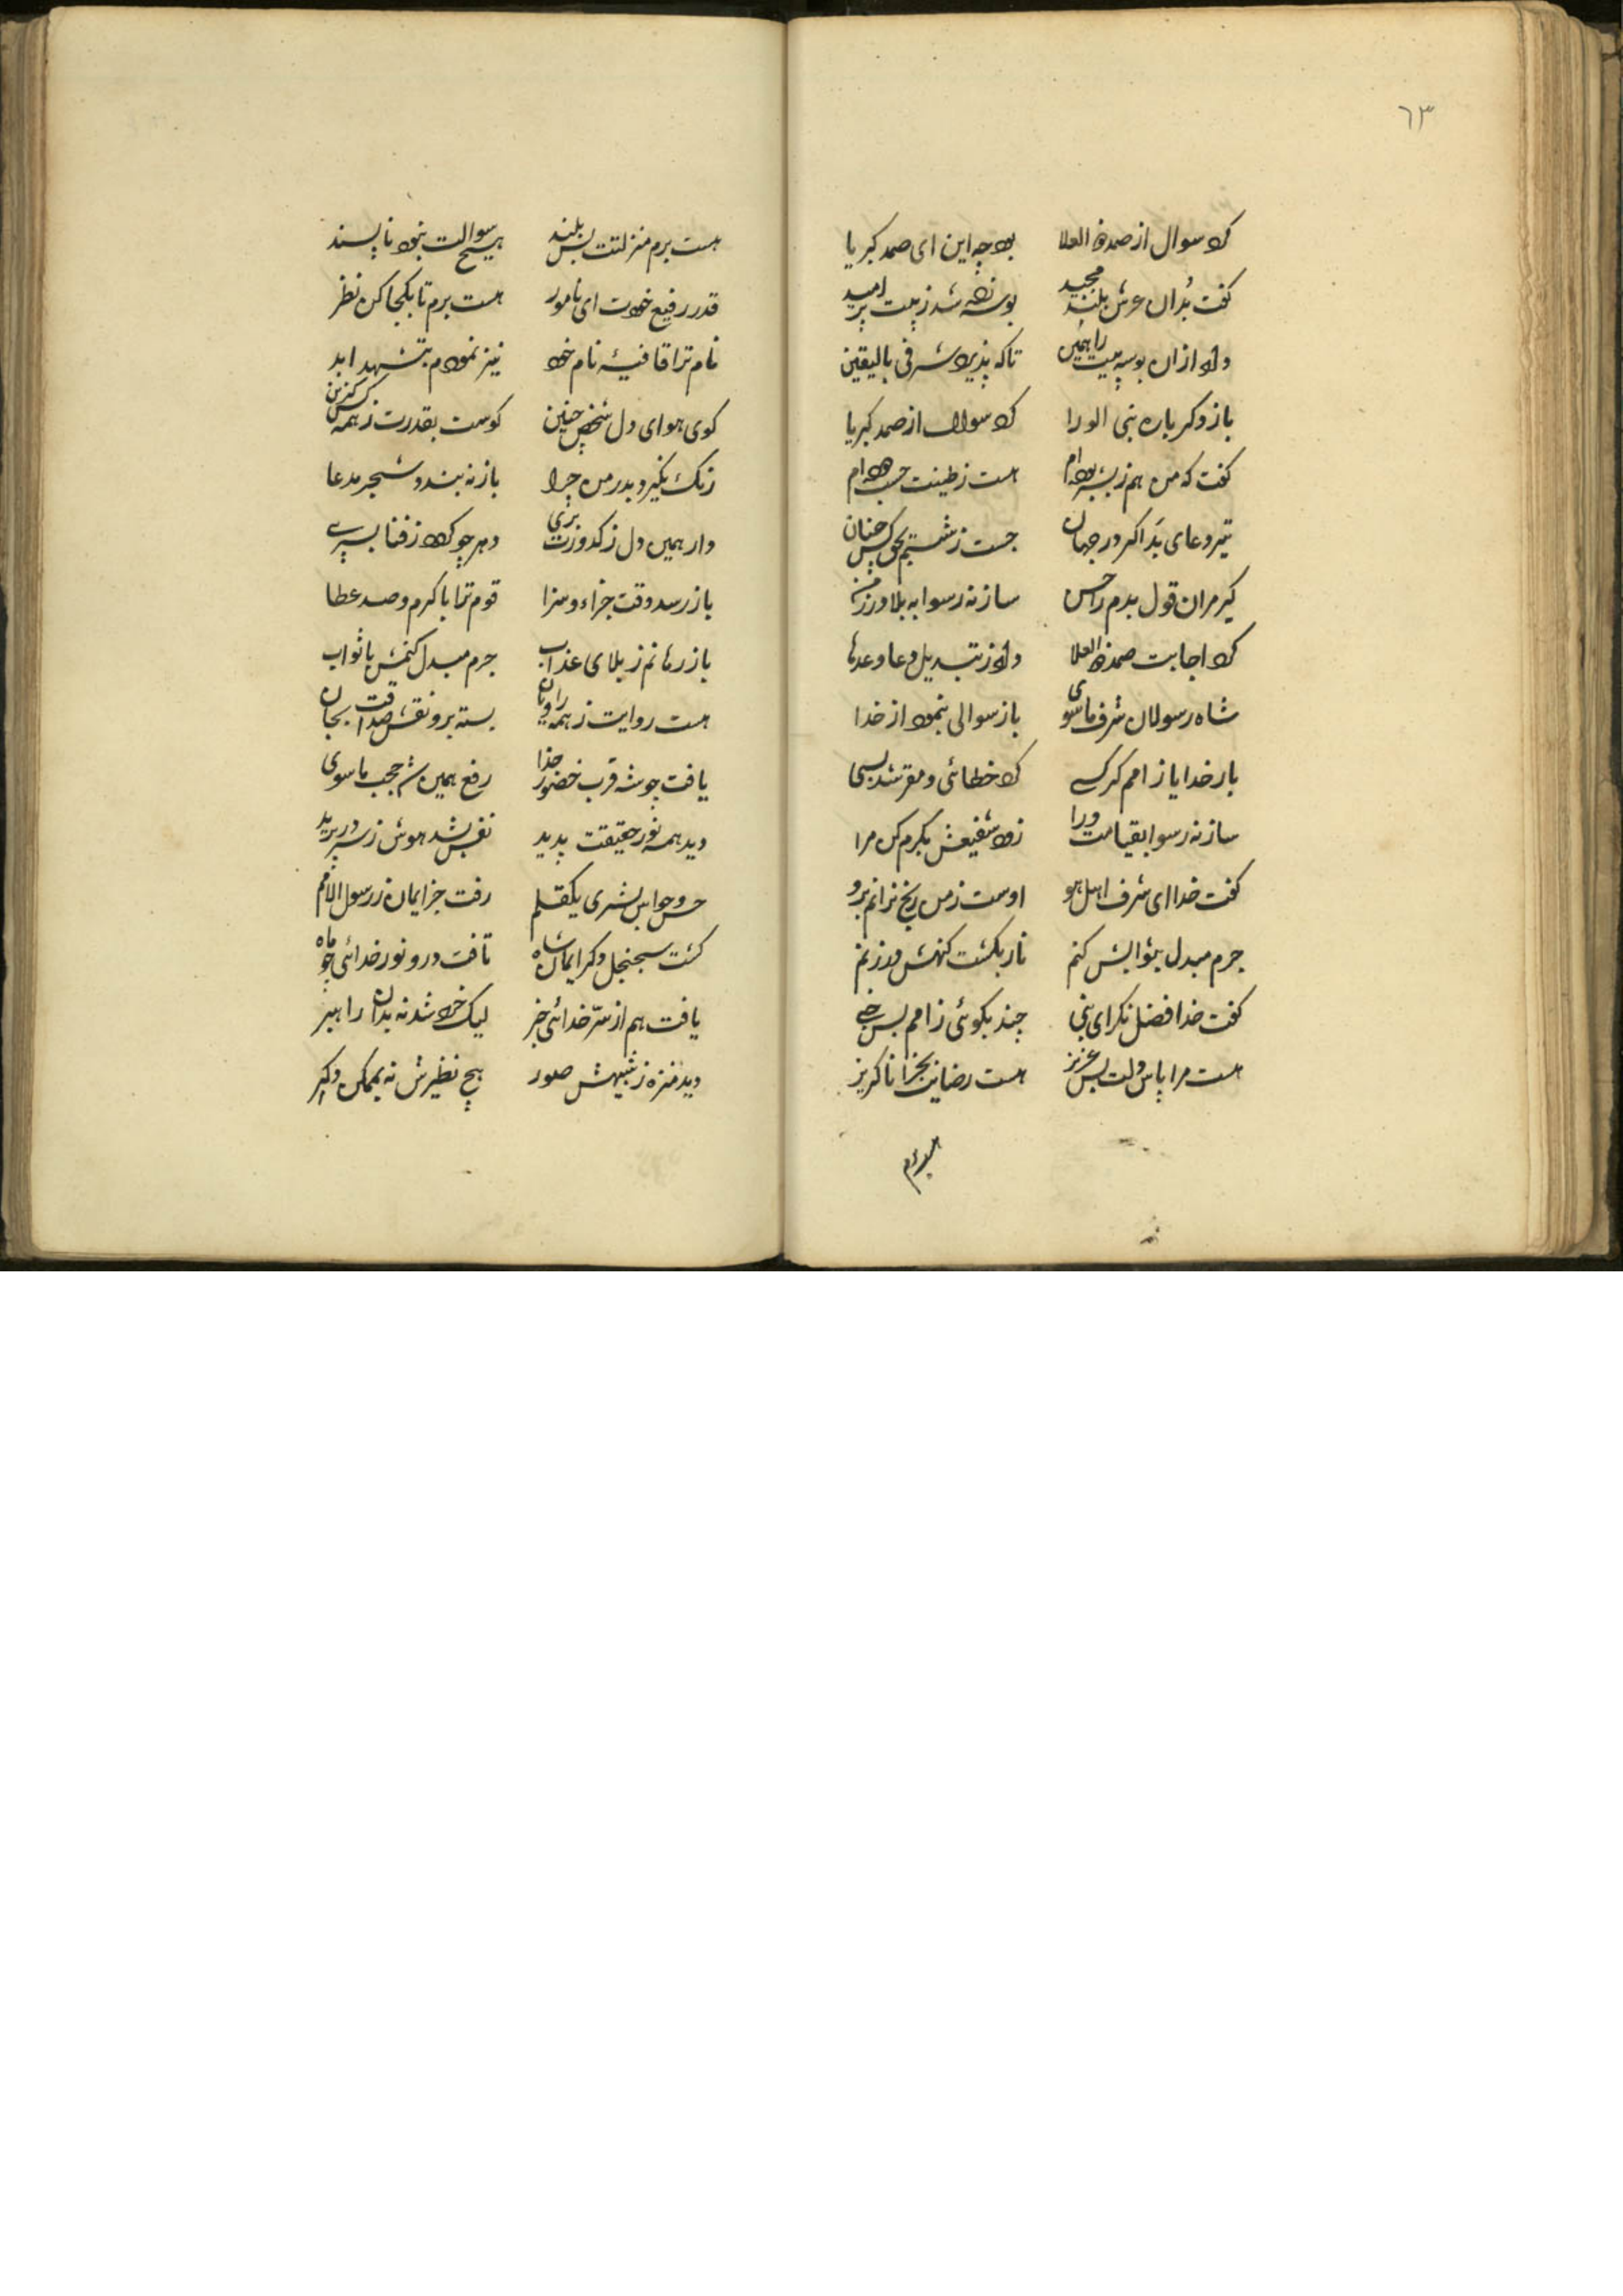 ٦٣
کرد سوال از صمد ذو العلا بود چه این ای صمد کبریا
گفت بُد آن عرش بلند مجید بوسه زده شد ز پیت پر امید
داد ازان بوسه پیت را همین تا که پذیرد شرفی بالیقین
باز دگر باره نبی الورا کرد سوال از صمد کبریا
گفت که من هم ز بشر بوده‌ام هست ز طینت
تیر دعای بد اگر در جهان جست ز شستم بحق کس چنان
گیر مران قول بدم را حسن سازنه رسوا به بلا در زمن
کرد اجابت صمد ذو العلا داد ز تبدیل دعا وعدها
شاه رسولان شرف ماسوی باز سوالی بنمود از خدا
بار خدایا ز امم گر کسی کرد خطائی و مقر شد بسی
سازنه رسوا بقیامت ورا زود شفیعش بکرم کن مرا
گفت خدا ای شرف اهل هو اوست ز من رنج نرانم برو
جرم مبدل بثوابش کنم نار بگشت گنهش در زنم
گفت خدا فضل نگر ای نبی چند بگوئی ز امم بس
هست مرا پاس دلت بس عزیز هست رضایت بجزا ناگزیز
هست برم منزلتت بس بلند هیچ سوالت نبود ناپسند
قدر رفیع خودت ای نامور هست برم تا بکجا کن نظر
نام ترا قافیهٔ نام خود نیز نمودم بتشهد ابد
گوی هوای دل شخص چنین گوست بقدرت ز همه کس گزین
زنگ نگیرد بدر من چرا باز نه بندد شجر مدعا
دار همین دل ز کدورت بری دهر چو گردد ز فنا بسپری
باز رسد وقت جزاء و سزا قوم ترا با کرم و صد عطا
باز رهانم ز بلای عذاب جرم مبدل کنمش با ثواب
هست روایت ز همه راویان بسته برو نقش صداقت بجان
یافت چو شه قرب حضور خدا رفع همین شد حجب ماسوی
دید همه نور حقیقت پدید نفس بشد هوش ز سر در پرید
حس و حواس بشری یکقلم رفت جز ایمان ز رسول الامم
گشت سجنجل دگر ایمان شاه تافت درو نور خدائی چو ماه
یافت هم از سرّ خدائی خبر لیک خرد شد نه بدان راهبر
دید منزه ز شبیهش صور هیچ نظیرش نه بممکن دگر